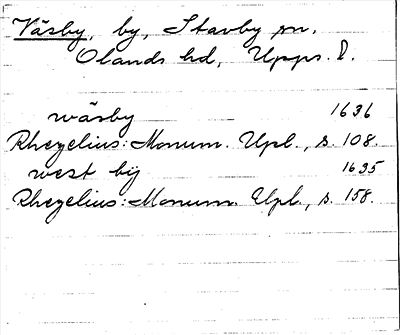 Väsby, by, Stavby sn.
Olands hd, Upps. l.
wäsby 1636
Rhezelius: Monum. Upl., s. 108.
west bij 1635
Rhezelius: Monum. Upl., s. 158.